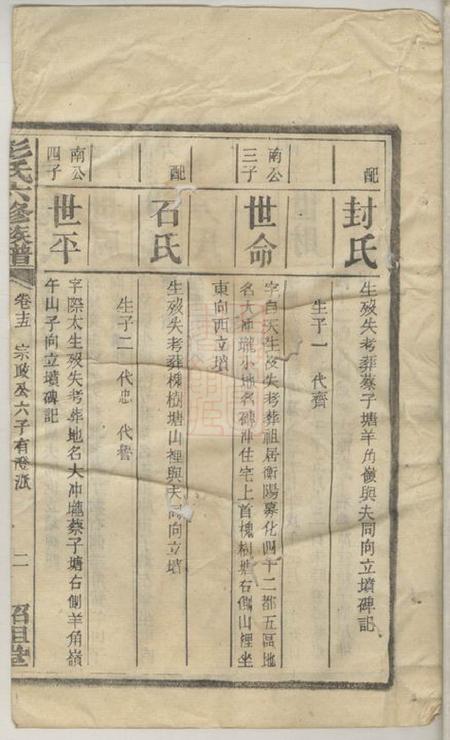 配
封氏
生歿失考葬蔡子塘羊角嶺與夫同向立墳碑記
生子一 代齊
南公三子
世命
字自天生歿失考葬祖居衡陽慕化四十二都五區地
名大冲壠小地名磚冲住宅上首槐樹塘右側山裡坐
東向西立墳
配
石氏
生歿失考葬槐樹塘山裡與夫同向立墳
生子二 代忠 代魯
南公四子
世平
字際太生歿失考葬地名大冲壠蔡子塘右側羊角嶺
午山子向立墳碑記
彭氏六修族譜
卷十五 宗政公六子有澄派
二
紹祖堂